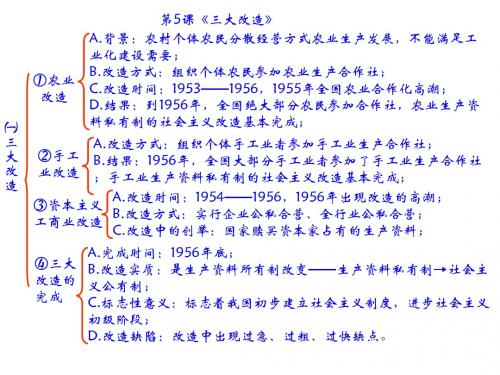 第5课《三大改造》
㈠三大改造
①农业改造
A.背景：农村个体农民分散经营方式农业生产发展，不能满足工
业化建设需要；
B.改造方式：组织个体农民参加农业生产合作社；
C.改造时间：1953——1956，1955年全国农业合作化高潮；
D.结果：到1956年，全国绝大部分农民参加合作社，农业生产资
料私有制的社会主义改造基本完成；
②手工
业改造
A.改造方式：组织个体手工业者参加手工业生产合作社；
B.结果：1956年，全国大部分手工业者参加了手工业生产合作社
；手工业生产资料私有制的社会主义改造基本完成；
③资本主义
工商业改造
A.改造时间：1954——1956，1956年出现改造的高潮；
B.改造方式：实行企业公私合营、全行业公私合营；
C.改造中的创举：国家赎买资本家占有的生产资料；
④三大
改造的
完成
A.完成时间：1956年底；
B.改造实质：是生产资料所有制改变——生产资料私有制→社会主
义公有制；
C.标志性意义：标志着我国初步建立社会主义制度，进步社会主义
初级阶段；
D.改造缺陷：改造中出现过急、过粗、过快缺点。